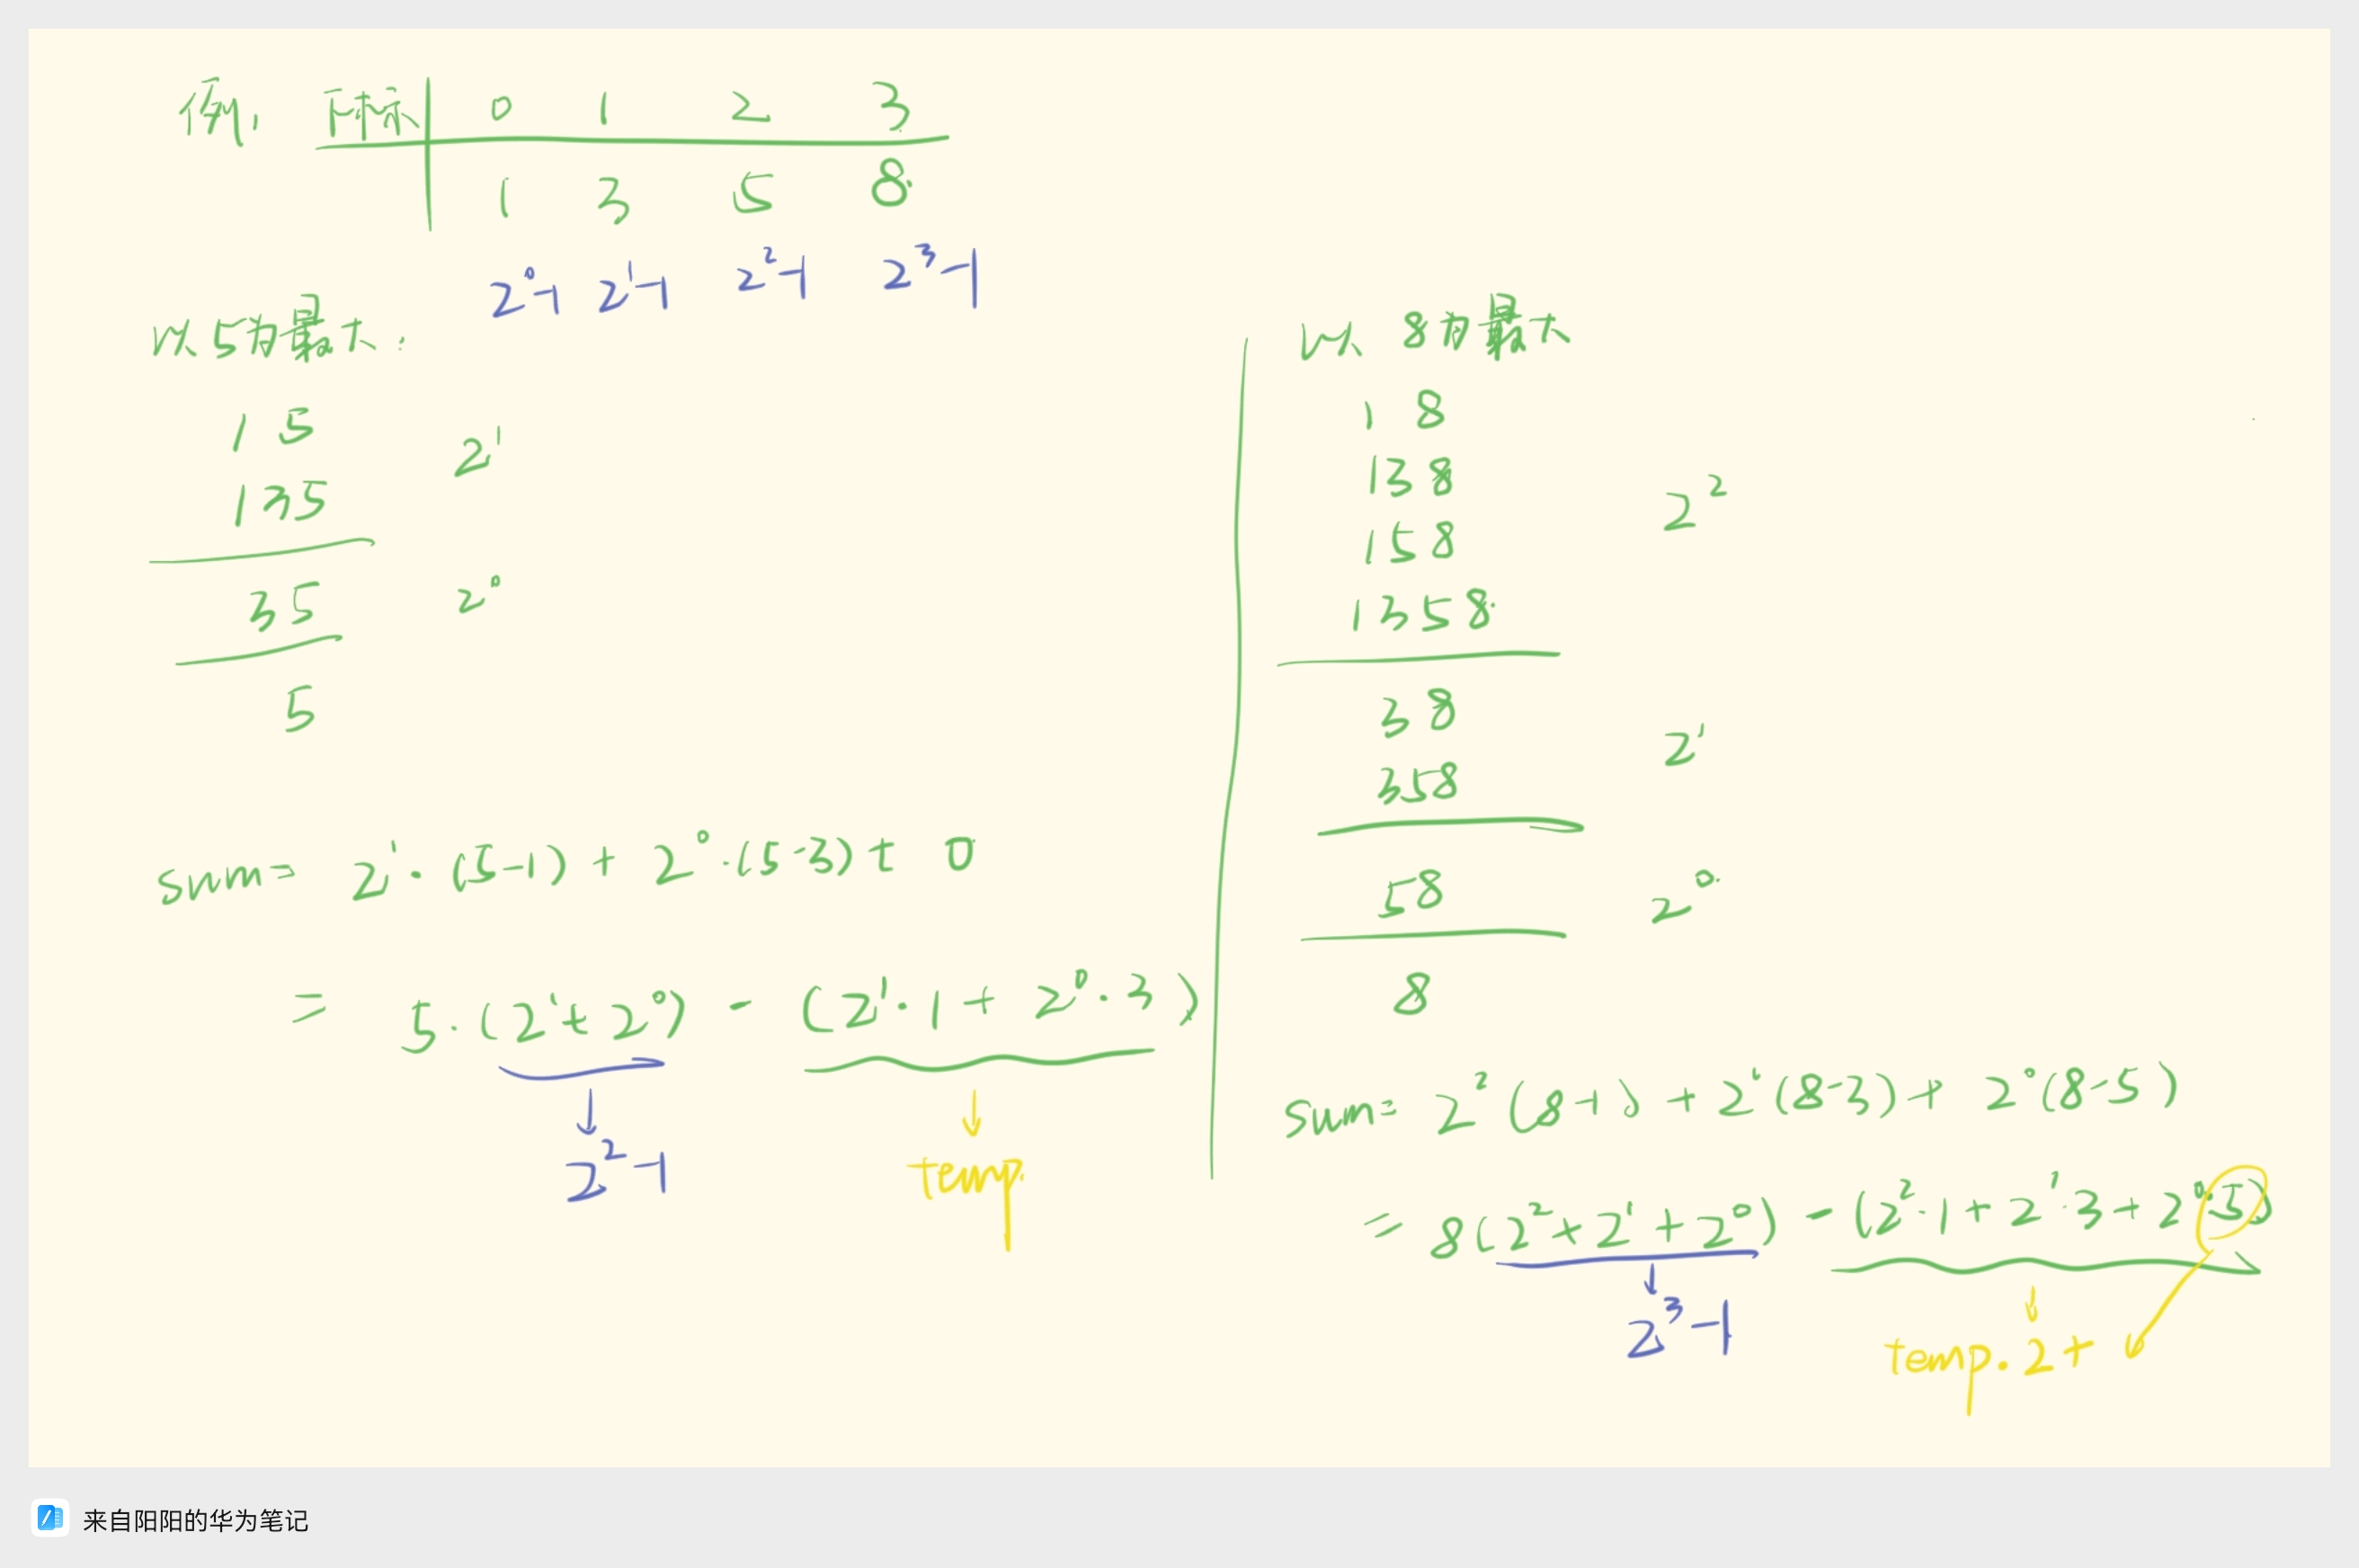 例, 下标 0 1 2 3
1 3 5 8
2⁰-1 2¹-1 2²-1 2³-1
以5为最大:
1 5
1 3 5 2¹
3 5 2⁰
5
sum= 2¹·(5-1) + 2⁰·(5-3) + 0
= 5·(2¹+2⁰) - (2¹·1 + 2⁰·3)
2²-1
temp
以 8为最大
1 8
1 3 8
1 5 8 2²
1 3 5 8
3 8
3 5 8 2¹
5 8 2⁰
8
sum= 2²(8-1) + 2¹(8-3) + 2⁰(8-5)
= 8(2²+2¹+2⁰) - (2²·1 + 2¹·3 + 2⁰·5)
2³-1
temp·2+
来自阳阳的华为笔记